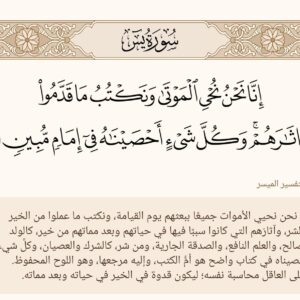 سُورَةُ يسٓ
إِنَّا نَحْنُ نُحْيِ ٱلْمَوْتَىٰ وَنَكْتُبُ مَا قَدَّمُوا۟
ثَـٰرَهُمْ ۚ وَكُلَّ شَىْءٍ أَحْصَيْنَـٰهُ فِىٓ إِمَامٍ مُّبِينٍ
فسير الميسر
نحن نحيي الأموات جميعًا ببعثهم يوم القيامة، ونكتب ما عملوا من الخير
شر، وآثارهم التي كانوا سببًا فيها في حياتهم وبعد مماتهم من خير، كالولد
صالح، والعلم النافع، والصدقة الجارية، ومن شر، كالشرك والعصيان، وكلَّ شيء
صيناه في كتاب واضح هو أمُّ الكتب، وإليه مرجعها، وهو اللوح المحفوظ.
لى العاقل محاسبة نفسه؛ ليكون قدوة في الخير في حياته وبعد مماته.